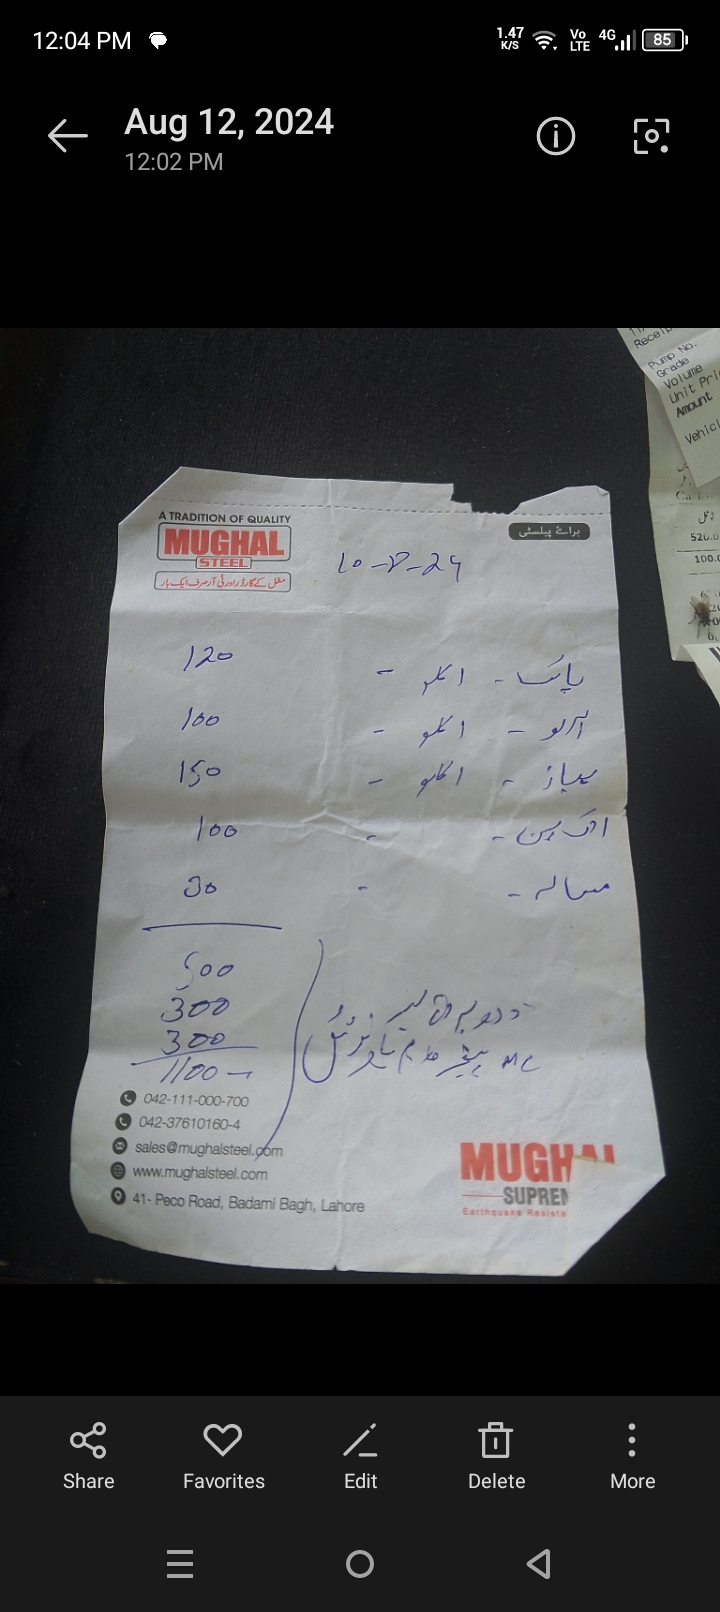 12:04 PM
1.47 K/S
Vo LTE
4G
85
Aug 12, 2024
12:02 PM
Receip
Pump No.
Grade
Volume
Unit Pri
Amount
Vehicl
520.0
100.
A TRADITION OF QUALITY
MUGHAL
STEEL
برائے پبلسٹی
10-8-24
120 - ا کلو -
100 - ا کلو - آلو
150 - ا کلو - پیاز
100 - -
30 - - مسالہ
500
300
300
1100
042-111-000-700
042-37610160-4
sales@mughalsteel.com
www.mughalsteel.com
41- Peco Road, Badami Bagh, Lahore
MUGHAL
SUPREM
Earthquake Resista
Share
Favorites
Edit
Delete
More